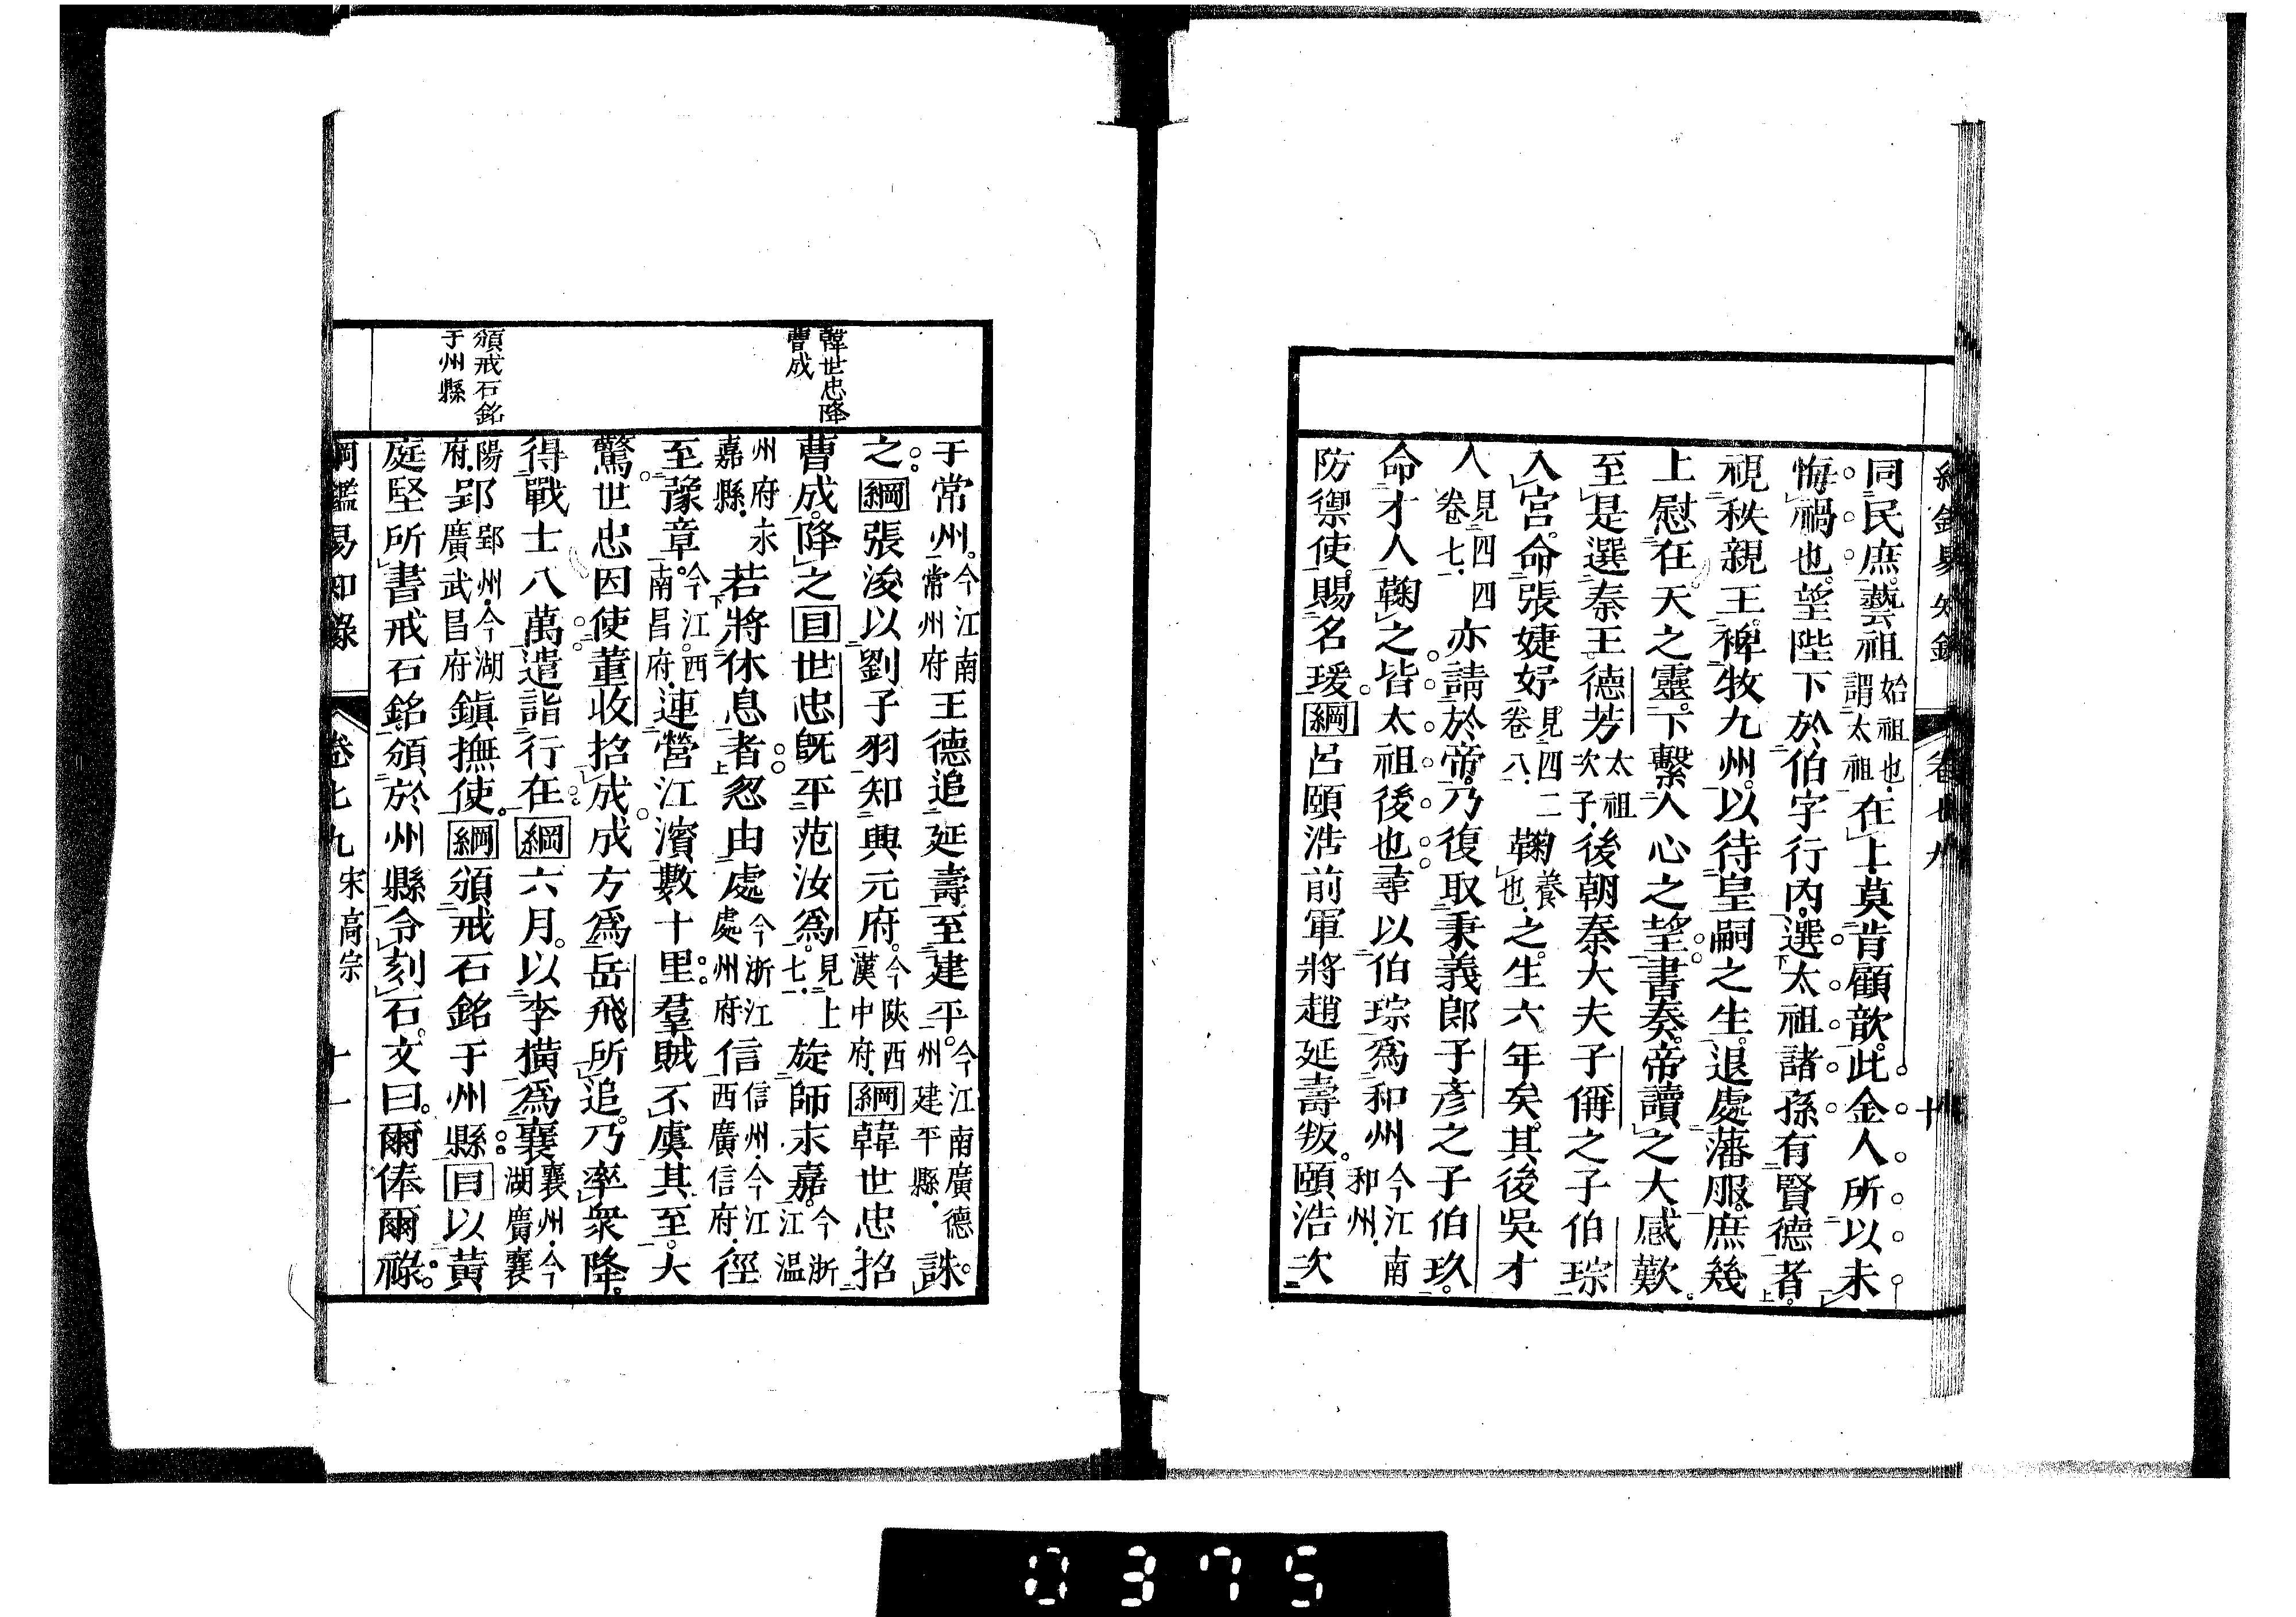 綱鑑易知錄 卷七九 十
同民庶。藝祖始祖也。謂太祖。在上莫肯顧歆。此金人所以未
悔禍也。望陛下於伯字行內。選太祖諸孫有賢德者。
視秩親王。裨牧九州。以待皇嗣之生。退處藩服。庶幾
上慰在天之靈。下繫人心之望。書奏。帝讀之大感歎。
至是選秦王德芳太祖次子。後朝秦大夫子偁之子伯琮
入宮。命張婕妤見四二卷八。鞠養也。之。生六年矣。其後吳才
人見四四卷七。亦請於帝。乃復取秉義郎子彥之子伯玖。
命才人鞠之。皆太祖後也。尋以伯琮爲和州今江南和州。
防禦使。賜名瑗。綱呂頤浩前軍將趙延壽叛。頤浩次
于常州。今江南常州府王德追延壽至建平。今江南廣德州建平縣。誅
之。綱張浚以劉子羽知興元府。今陝西漢中府。綱韓世忠招
曹成。降之目世忠旣平范汝爲。見上七一。旋師永嘉。今浙江温
州府永嘉縣。若將休息者。忽由處今浙江處州府信信州。今江西廣信府。徑
至豫章。今江西南昌府。連營江濱數十里。羣賊不虞其至。大
驚。世忠因使董收招成。成方爲岳飛所追。乃率衆降。
得戰士八萬。遣詣行在。綱六月。以李橫爲襄襄州。今湖廣襄
陽府。郢郢州。今湖廣武昌府鎭撫使。綱頒戒石銘于州縣。目以黃
庭堅所書戒石銘。頒於州縣。令刻石。文曰。爾俸爾祿。
韓世忠降
曹成
頒戒石銘
于州縣
綱鑑易知錄 卷七九 宋高宗 十一
0375